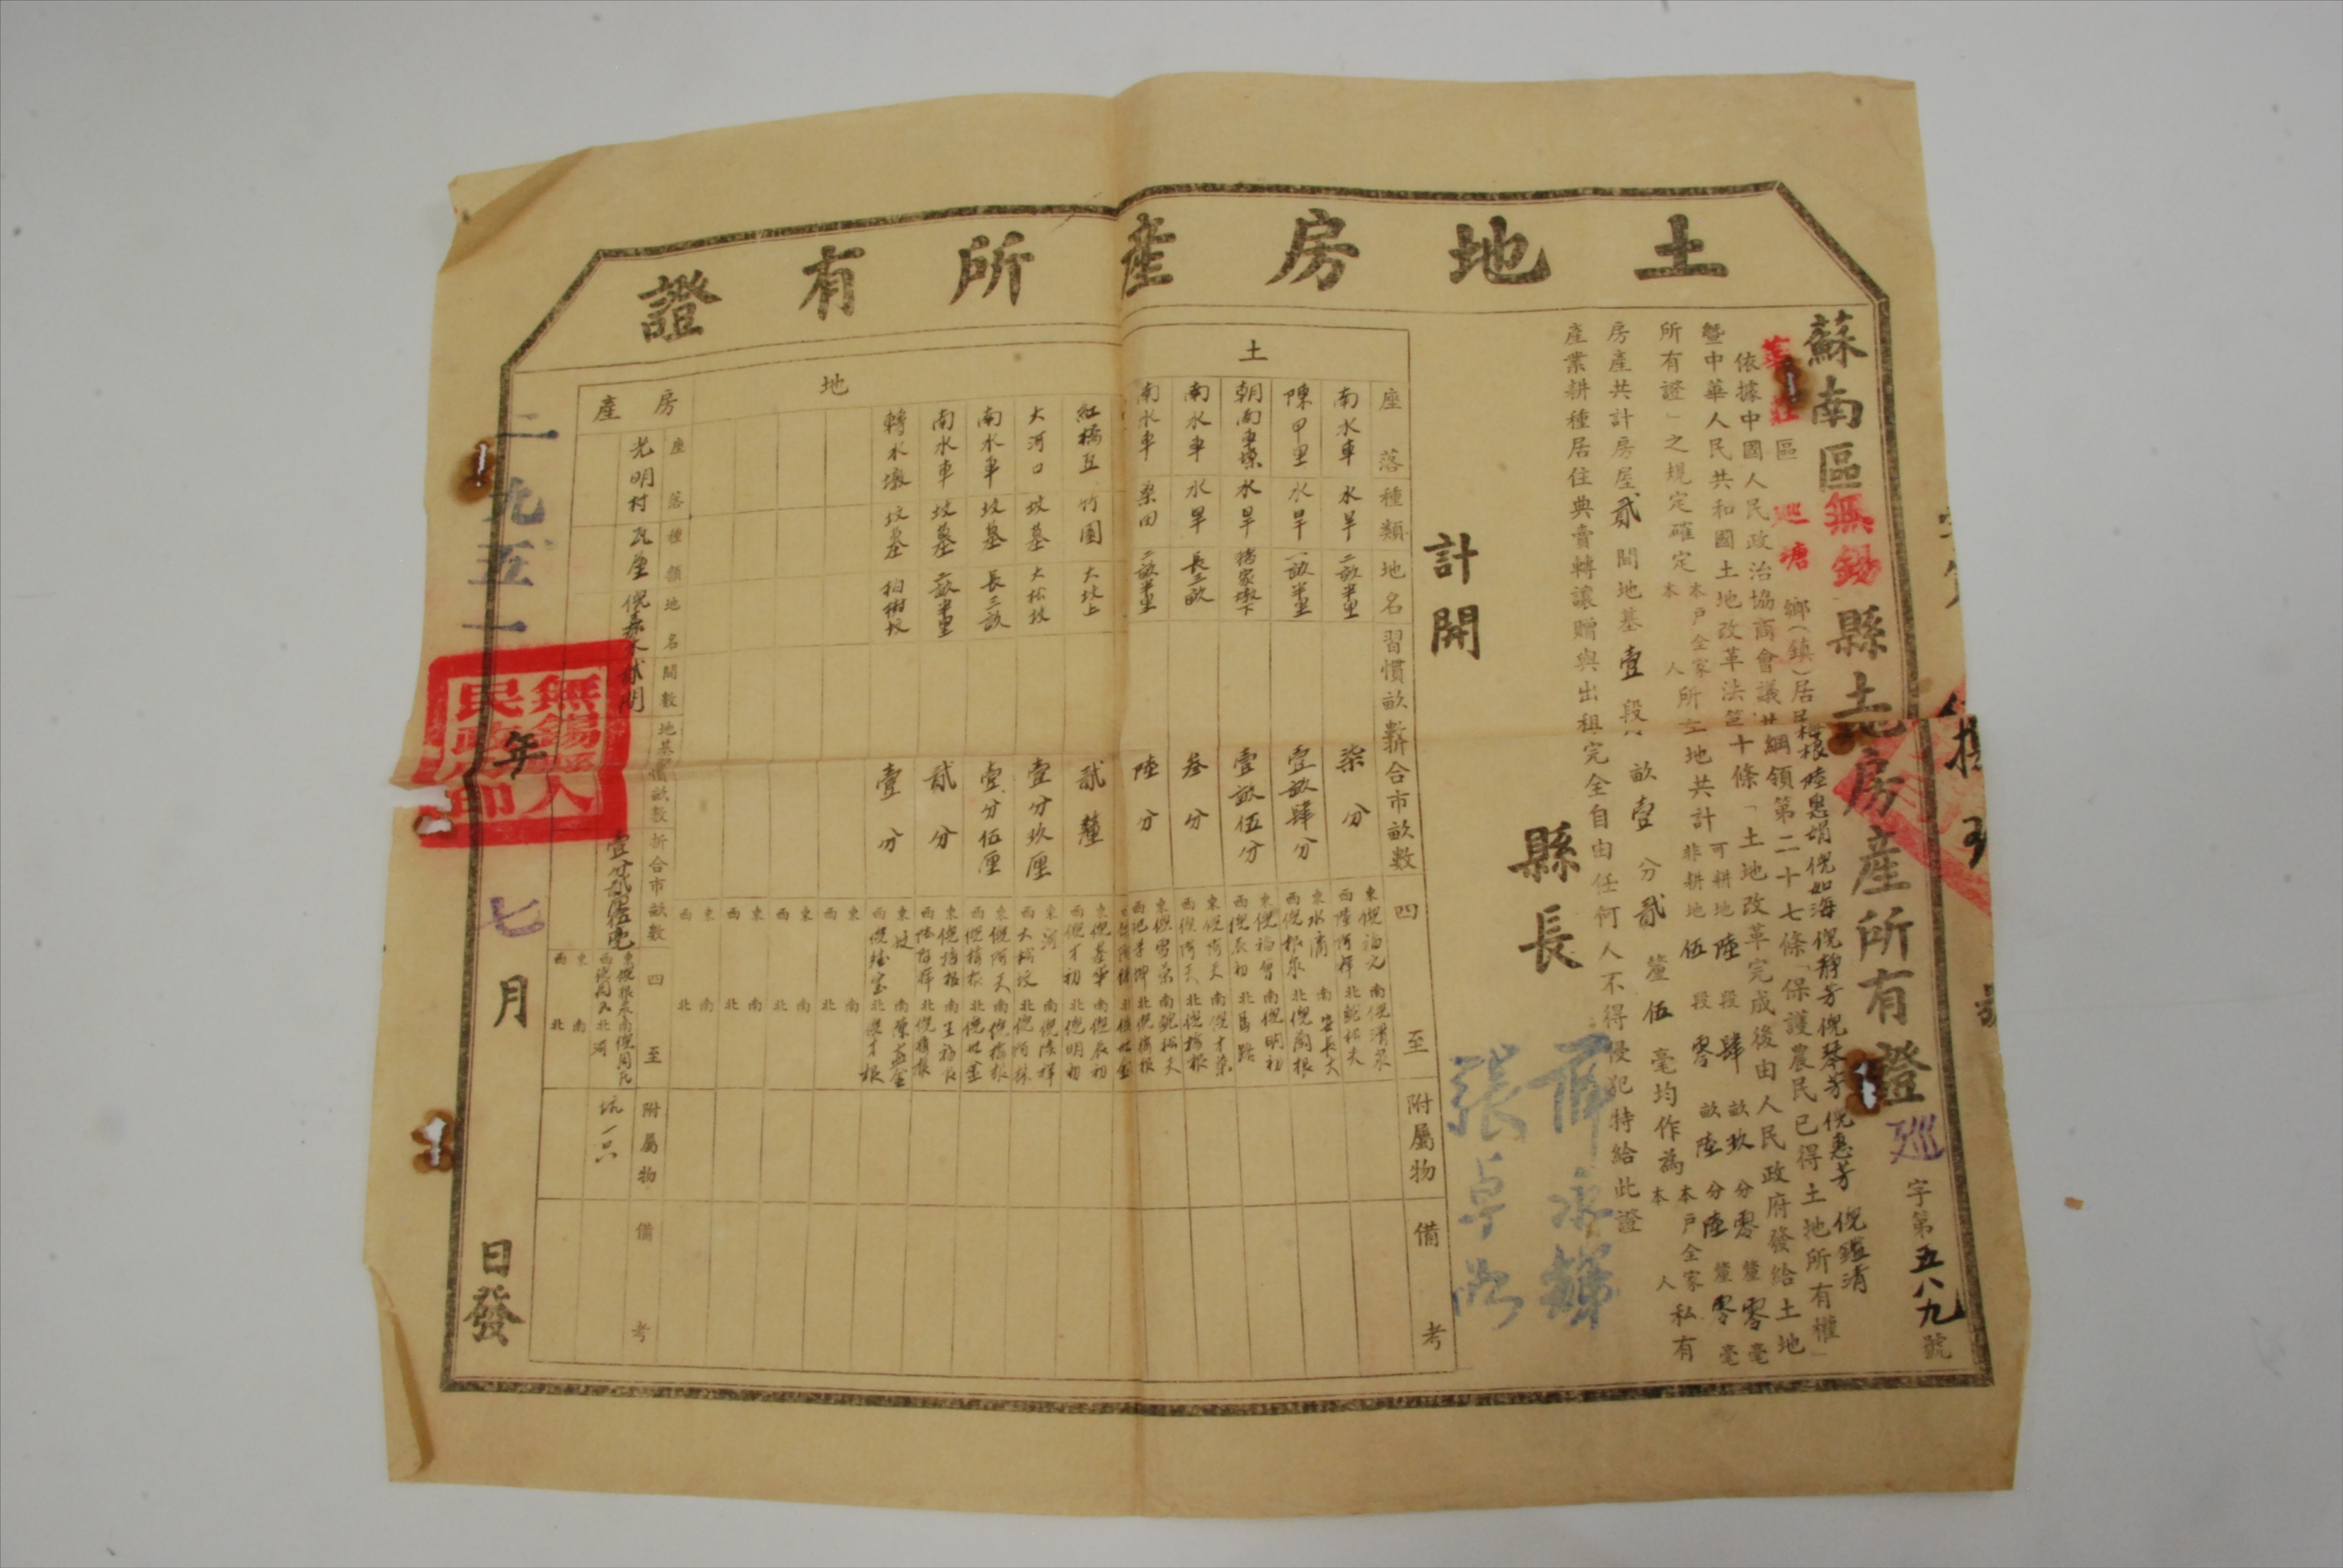 土地房產所有證
蘇南區無錫縣土地房產所有證 巡字第五八九號
華莊區 巡塘鄉(鎮)居民 梅根 陸惠娟 倪如海 倪靜芳 倪琴芳 倪惠芳 倪鑑清
依據中國人民政治協商會議共同綱領第二十七條「保護農民已得土地所有權」
暨中華人民共和國土地改革法第三十條「土地改革完成後由人民政府發給土地
所有證」之規定確定本戶全家本人所有土地共計可耕地陸段肆畝玖分零釐零毫非耕地伍段零畝陸分陸釐零毫
房產共計房屋貳間地基壹段 畝壹分貳釐伍毫均作為本戶全家本人私有
產業耕種居住典賣轉讓贈與出租完全自由任何人不得侵犯特給此證
縣長
張卓如
計開
土地
座落 種類 地名 習慣畝數 折合市畝數 四至 附屬物 備考
南水車 水旱 二畝半里 柒分 東倪福元 西陸阿祥 南倪清泉
陳甲里 水旱 一畝半里 壹畝肆分 東水溝 西倪根泉 南 北倪阿根
朝南車 水旱 壹畝伍分 東倪福曾 西倪辰初 南倪明初 北馬路
南水車 水旱 長三畝 叁分 東倪阿夫 西倪阿夫 南倪才榮 北倪梅根
南水車 桑田 二畝半里 陸分
紅橋 竹園 大坟上 貳釐 東倪基華 西倪才初 南倪辰初 北倪明初
大河口 坟墓 大松坟 壹分玖厘 東河 西大松坟 南倪陸祥
南水車 坟墓 長三畝 壹分伍厘 東倪阿夫 西倪梅根 南倪梅根 北倪世金
南水車 坟墓 二畝半里 貳分 東倪梅根 南王福 北倪梅根
轉水墩 坟墓 柏樹坟 壹分 東坟 北 才根
東 西 南 北
東 西 南 北
東 西 南 北
東 西 南 北
房產
座落 種類 地名 間數 地基習慣畝數 折合市畝數 四至 附屬物 備考
光明村 瓦屋 貳間 壹分貳釐伍毫 東倪根泉 南倪同 北河 坑一只
東 西 南 北
一九五一年七月 日發
無錫縣人民政府印